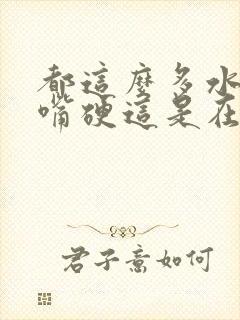 都這麼多水
嘴硬這是在
君子意如何